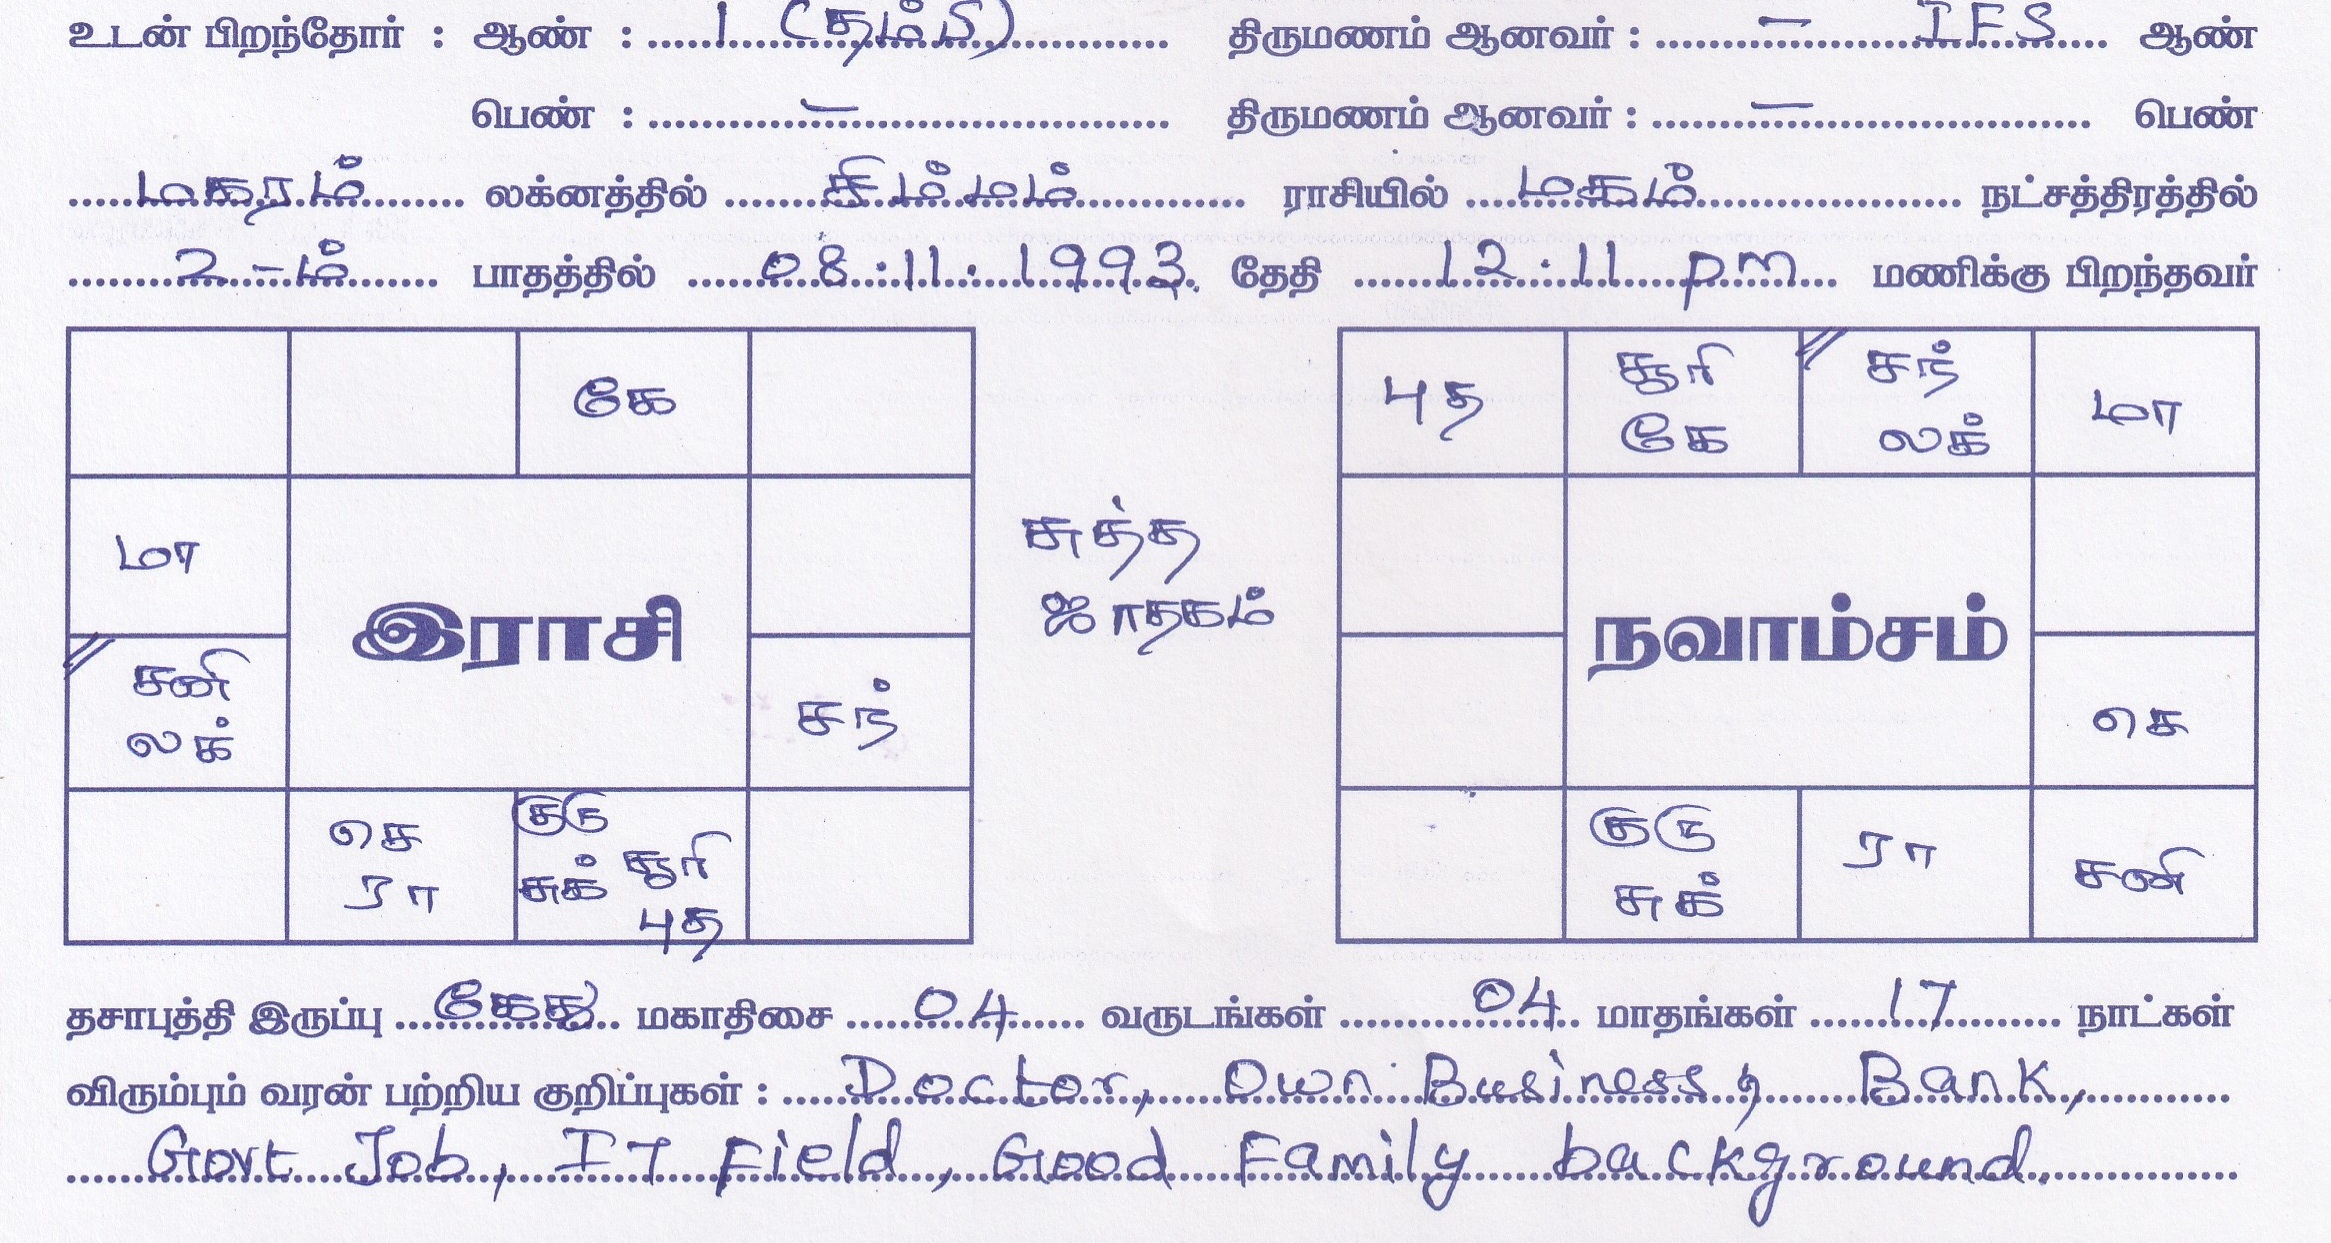 உடன் பிறந்தோர் : ஆண் : 1 (தம்பி) திருமணம் ஆனவர் : – IFS ஆண்
பெண் : – திருமணம் ஆனவர் : – பெண்
மகரம் லக்னத்தில் சிம்மம் ராசியில் மகம் நட்சத்திரத்தில்
2-ம் பாதத்தில் 08.11.1993. தேதி 12.11 pm மணிக்கு பிறந்தவர்
கே
மா
இராசி
சனி
லக்
சந்
செ
ரா
குரு
சுக் சூரி
புத
சுத்த
ஜாதகம்
புத
சூரி
கே
சந்
லக்
மா
நவாம்சம்
செ
குரு
சுக்
ரா
சனி
தசாபுத்தி இருப்பு கேது மகாதிசை 04 வருடங்கள் 04 மாதங்கள் 17 நாட்கள்
விரும்பும் வரன் பற்றிய குறிப்புகள் : Doctor, Own Business, Bank,
Govt Job, IT Field, Good Family background.